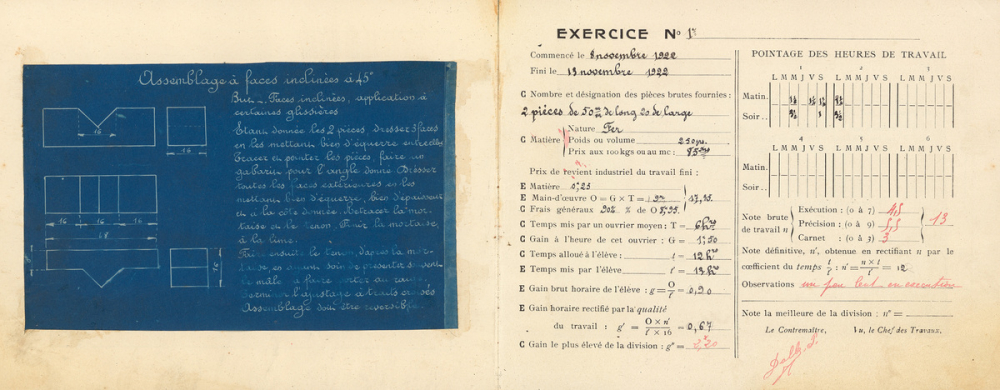 Assemblage à faces inclinées à 45°
But _ Faces inclinées, application à
certaines glissières
Etant donnée les 2 pièces, dresser 3 faces
en les mettant bien d'équerre entre elles
Tracer en pointer les pièces, faire un
gabarit pour l'angle donné Dresser
toutes les faces extérieures en les
mettant bien d'équerre, bien d'épaisseur
et à la côte donnée. Retracer la mor-
taise et le tenon. Finir la mortaise
à la lime.
Faire ensuite le tenon d'après la mor-
taise, en ayant soin de présentir
le mâle à faire porter au rouge
Terminer l'ajustage à traits croisés
Assemblage doit être réversible
16
16
16
16
16
48
16
EXERCICE No 1er
Commencé le 8 novembre 1922
Fini le 13 novembre 1922
C Nombre et désignation des pièces brutes fournies :
2 pièces de 50 de long 20 de large
C Matière
Nature Fer
Poids ou volume 250gr.
Prix aux 100 kgs ou au mc :
Prix de revient industriel du travail fini :
E Matière 0,25
E Main-d'œuvre O = G × T =
C Frais généraux % de O
C Temps mis par un ouvrier moyen : T =
C Gain à l'heure de cet ouvrier : G = 1,50
C Temps alloué à l'élève : t = 12 h
E Temps mis par l'élève
E Gain brut horaire de l'élève : g = = 0,90
E Gain horaire rectifié par la qualité
du travail : g' = = 0,67
C Gain le plus élevé de la division : g" =
POINTAGE DES HEURES DE TRAVAIL
1 2 3
L M M J V S L M M J V S L M M J V S
Matin.
Soir..
4 5 6
L M M J V S L M M J V S L M M J V S
Matin.
Soir..
Note brute de travail n
Exécution : (0 à 7) 4,5
Précision : (0 à 9) 5,5
Carnet : (0 à 3) 3
13
Note définitive, n', obtenue en rectifiant n par le
cœfficient du temps : n' = = 12
Observations un peu lent en exécution
Note la meilleure de la division : n" =
Le Contremaître, Vu, le Chef des Travaux,